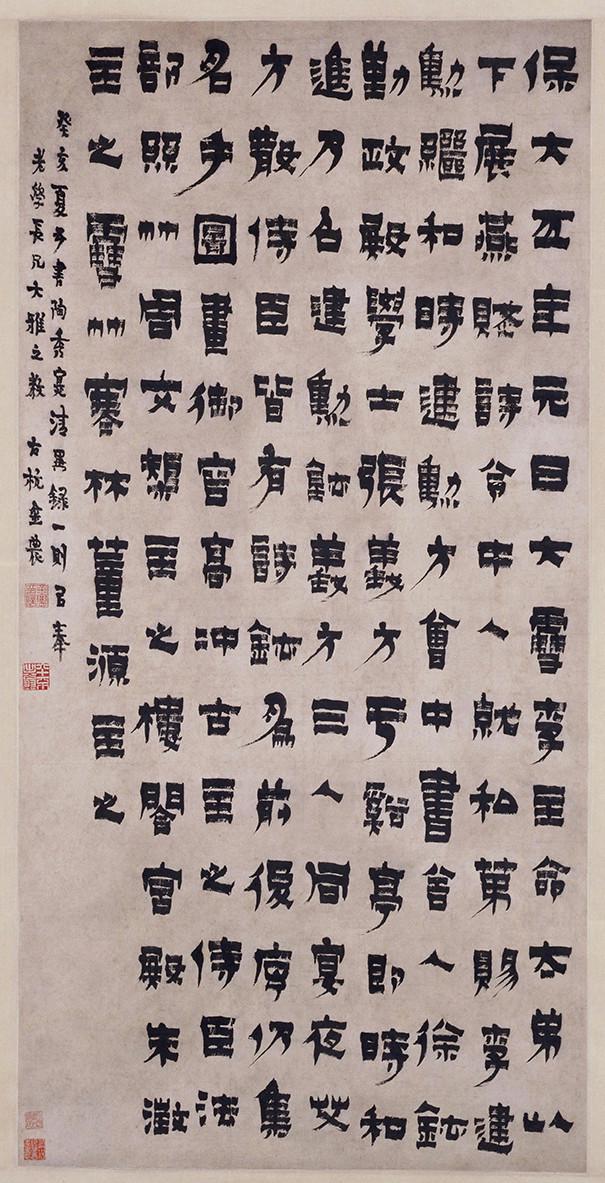 保大五年元日大雪李主命太弟以
下展燕賦詩令中人就私第賜李建
勳繼和時建勳方會中書舍人徐鉉
勤政殿學士張義方于谿亭即時和
進乃召建勳鉉義方三人同宴夜艾
方散侍臣皆有詩鉉為前後序仍集
名手圖畫御容高沖古主之侍臣法
部照竹周文榘主之樓閣宮殿朱澂
主之雪竹寒林董源主之
癸亥夏五書陶秀實清異錄一則㠯奉
老學長兄大雅之教 古杭金農